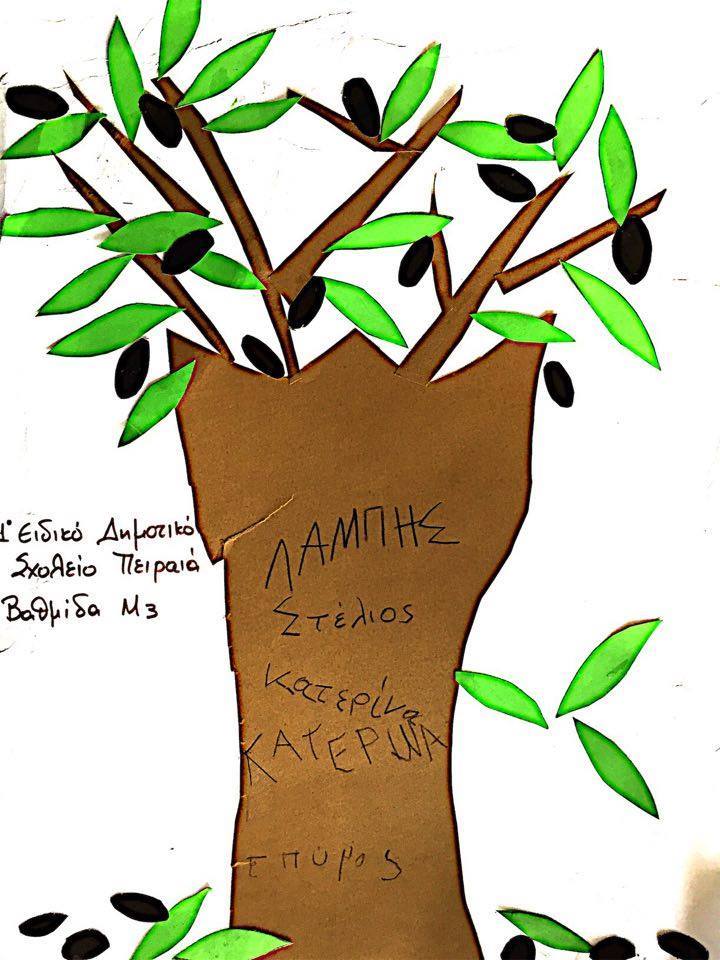 1° Ειδικό Δημοτικό
Σχολείο Πειραιά
Βαθμίδα Μ3
ΛΑΜΠΗΣ
Στέλιος
Κατερίνα
ΚΑΤΕΡΙΝΑ
Σπύρος